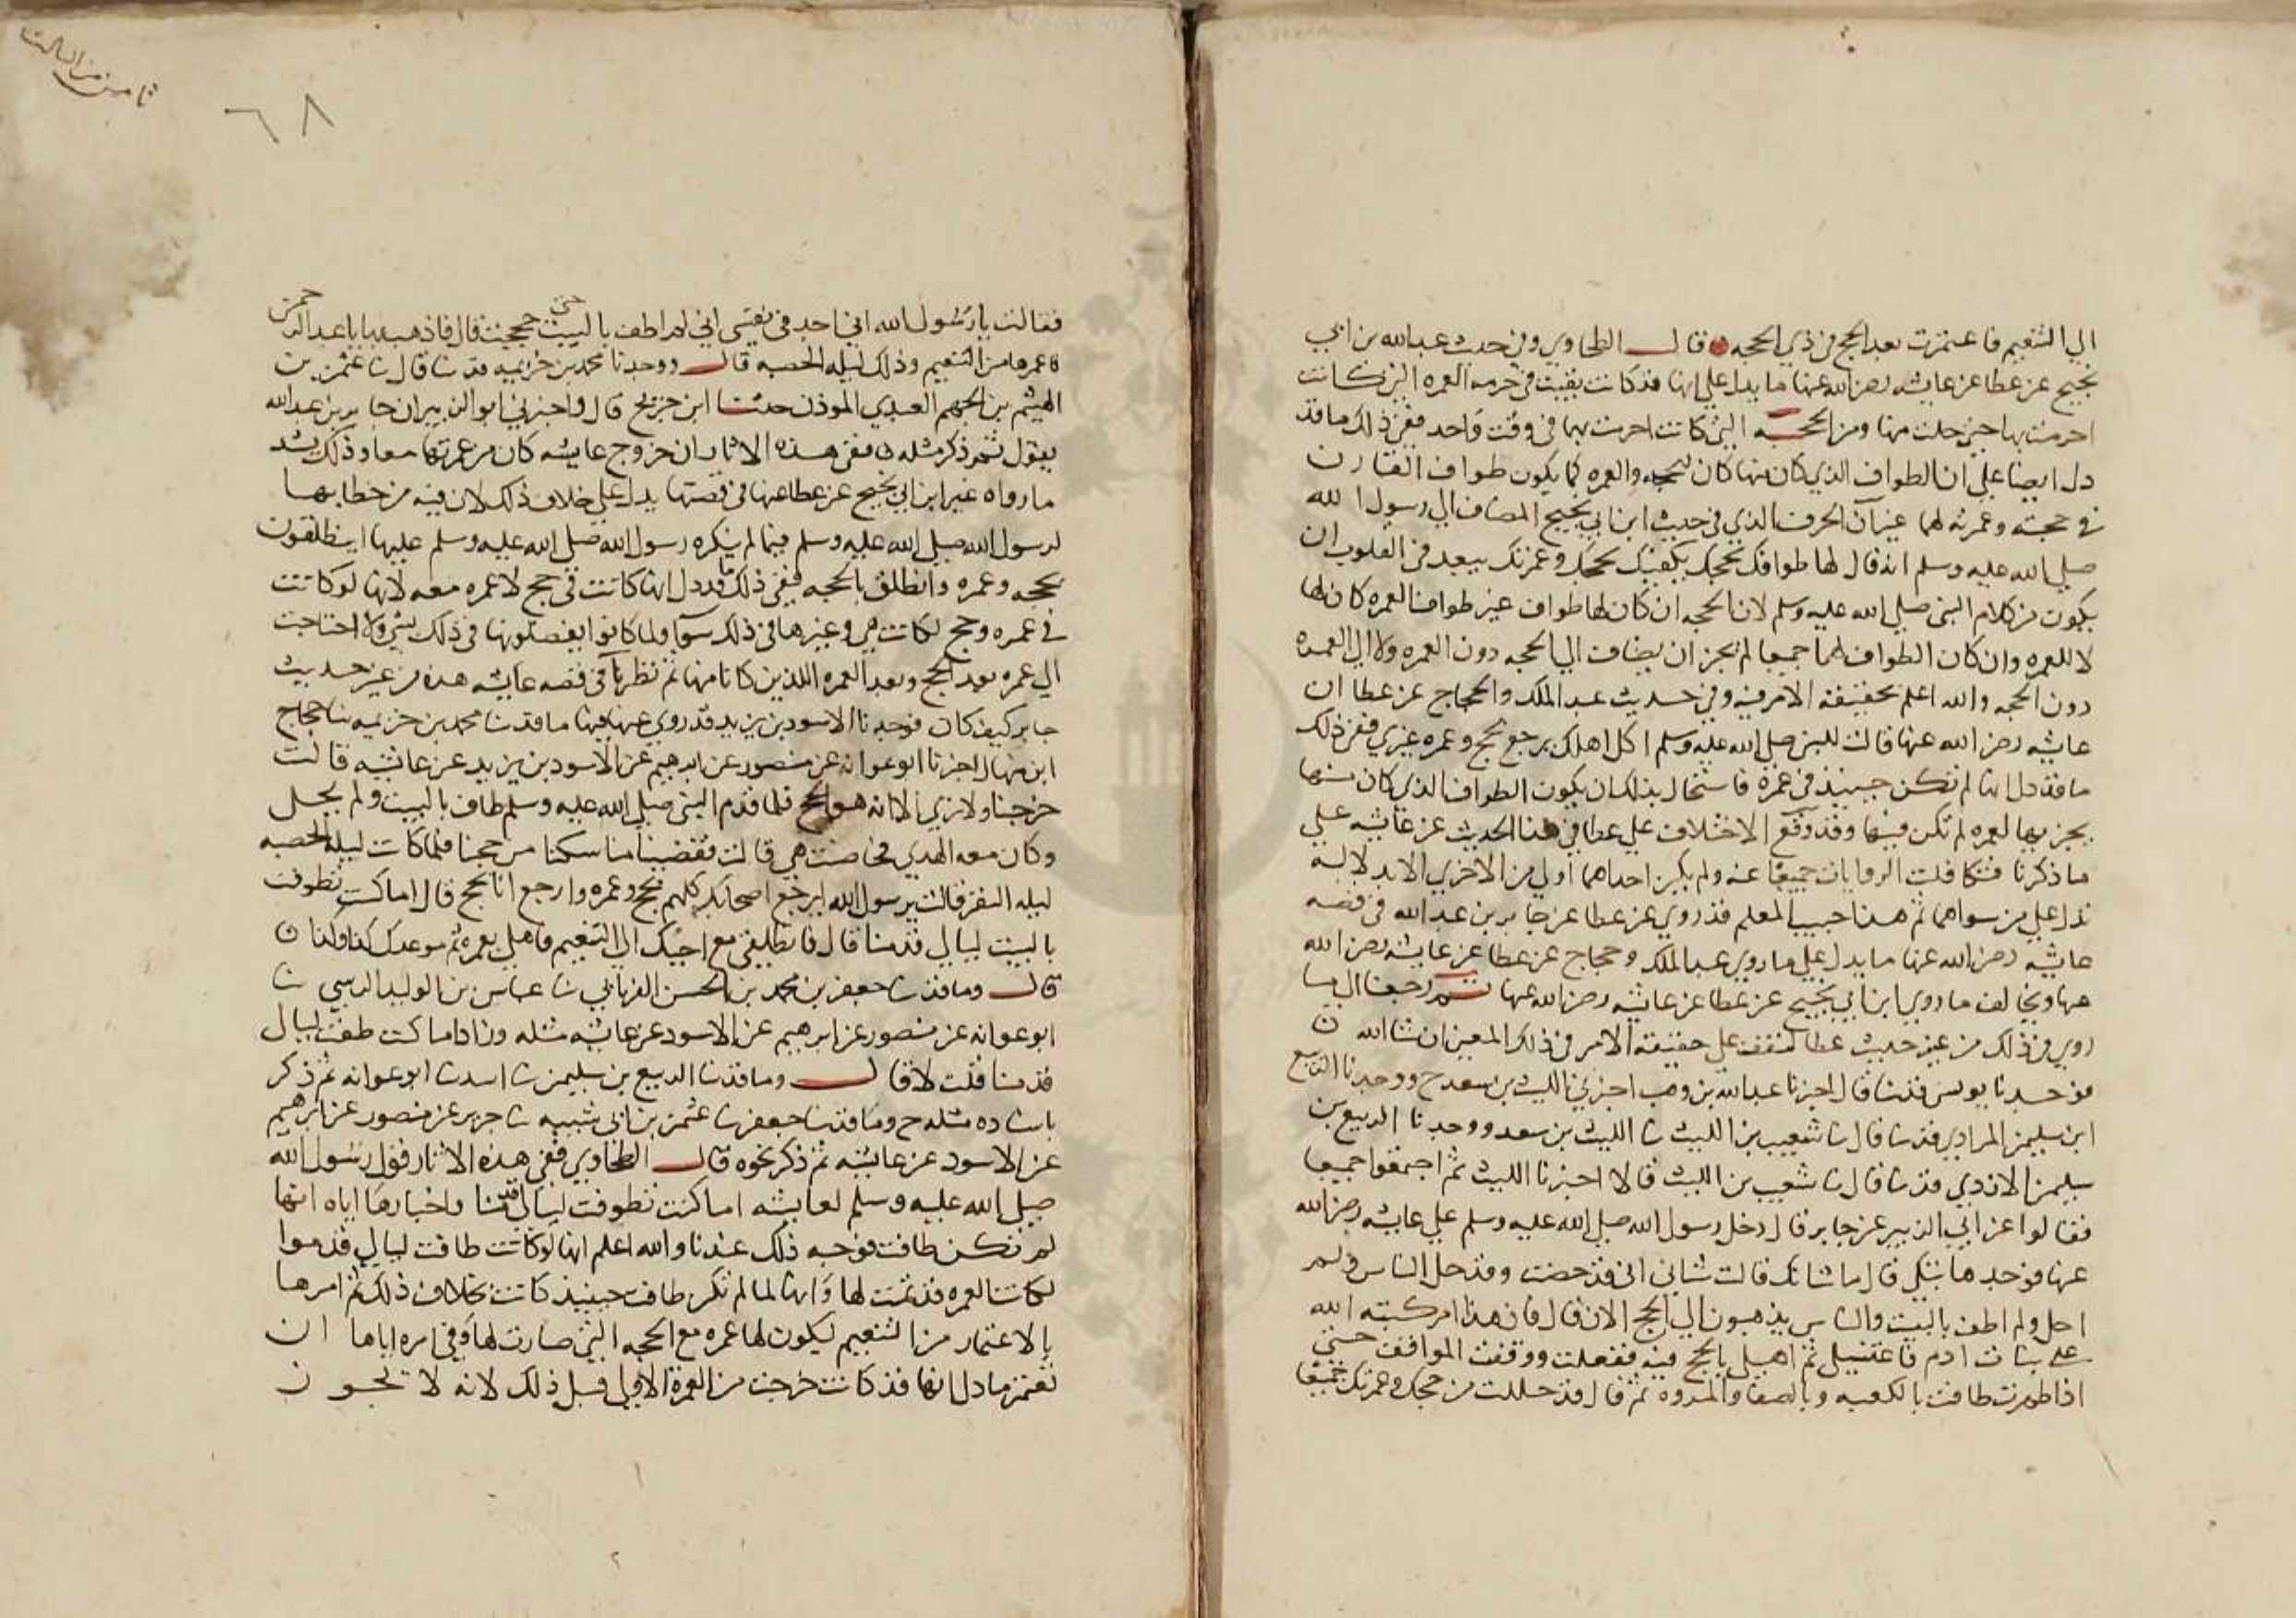 الي التنعيم فاعتمرت بعد الحج في ذي الحجه قال الطحاوي وفي حديث عبدالله بن ابي
نجيح عن عطا عن عايشه رضي الله عنها ما يدل علي انها قد كانت بقيت في حرمه العمره التي كانت
احرمت بها حتي حلت منها ومن الحجه التي كانت احرمت بها في وقت واحد ففي ذلك ما قد
دل ايضا علي ان الطواف الذي كان منها كان للحجه والعمره كما يكون طواف القارن
في حجته وعمرته لهما غير ان الحرف الذي في حديث ابن ابي نجيح المضاف الي رسول الله
صلي الله عليه وسلم انه قال لها طوافك لحجك يكفيك لحجك وعمرتك يبعد في القلوب ان
يكون من كلام النبي صلي الله عليه وسلم لان الحجه ان كان لها طواف غير طواف العمره كان لها
لا للعمره وان كان الطواف لهما جميعا لم يجز ان يضاف الي الحجه دون العمره ولا الي العمره
دون الحجه والله اعلم بحقيقه الامر فيه وفي حديث عبد الملك والحجاج عن عطا ان
عايشه رضي الله عنها قالت للنبي صلي الله عليه وسلم اكل اهلك يرجع بحج وعمره غيري ففي ذلك
ما قد دل انها لم تكن حينيذ في عمره فاستحال بذلك ان يكون الطواف الذي كان منها
يجزيها لعمره لم تكن فيها وقد وقع الاختلاف علي عطا في هذا الحديث عن عايشه علي
ما ذكرنا فتكافت الروايات جميعا عنه ولم يكن احداهما اولي من الاخري الا بدلاله
تدل علي من سواهما ثم هذا حبيب المعلم قد روي عن عطا عن جابر بن عبد الله في قصه
عايشه رضي الله عنها ما يدل علي ما روي عبد الملك وحجاج عن عطا عن عايشه رضي الله
عنها ويخالف ما روي ابن ابي نجيح عن عطا عن عايشه رضي الله عنها ثم رجعنا الي ما
روي في ذلك من غير حديث عطا لنقف علي حقيقه الامر في ذلك المعني ان شا الله
فوجدنا يونس قد ثنا قال اخبرنا عبدالله بن وهب اخبرني الليث بن سعد ح ووجدنا الربيع
ابن سليمن المرادي قد ثنا قال ثنا شعيب بن الليث ثنا الليث بن سعد ووجدنا الربيع بن
سليمن الازدي قد ثنا قال ثنا شعيب بن الليث قالا اخبرنا الليث ثم اجتمعوا جميعا
فقالوا عن ابي الزبير عن جابر قال دخل رسول الله صلي الله عليه وسلم علي عايشه رضي الله
عنها فوجدها تبكي قال ما شانك قالت شاني اني قد حضت وقد حل الناس ولم
احل ولم اطف بالبيت والناس يذهبون الي الحج الان قال فان هذا امر كتبه الله
علي بنات ادم فاغتسلي ثم اهلي بالحج فيه ففعلت ووقفت المواقف حتي
اذا طهرت طافت بالكعبه وبالصفا والمروه ثم قال قد حللت من حجك وعمرتك جميعا
ثامن من الثالث
٦٨
فقالت يا رسول الله اني اجد في نفسي اني لم اطف بالبيت حتي حججت قال فاذهب بها يا عبد الرحمن
فاعمرها من التنعيم وذلك ليله الحصبه قال ووجدنا محمد بن خزيمه قد ثنا قال ثنا عثمن بن
الهيثم بن الجهم العبدي الموذن حدثنا ابن جريج قال واخبرني ابو الزبير ان جابر بن عبدالله
يقول ثم ذكر مثله ففي هذه الاثار ان خروج عايشه كان من عمرتها معا وذلك يشد
ما رواه غير ابن ابي نجيح عن عطا عنها في قصتها يدل علي خلاف ذلك لان فيه من خطابها
لرسول الله صلي الله عليه وسلم فيما لم ينكره رسول الله صلي الله عليه وسلم عليها اينطلقون
بحجه وعمره وانطلق بالحجه ففي ذلك ما قد دل انها كانت في حج لا عمره معه لانها لو كانت
في عمره وحج لكانت هي وغيرها في ذلك سوا ولما كانوا يفضلونها في ذلك بشي ولا احتاجت
الي عمره بعد الحج وبعد العمره اللذين كانا منها ثم نظرنا في قصه عايشه هذه من غير حديث
جابر كيف كان فوجدنا الاسود بن يزيد قد روي عنها فيها ما قد ثنا محمد بن خزيمه ثنا حجاج
ابن منهال اخبرنا ابو عوانه عن منصور عن ابرهيم عن الاسود بن يزيد عن عايشه قالت
خرجنا ولا نري الا انه هو الحج فلما قدم النبي صلي الله عليه وسلم طاف بالبيت ولم يحل
وكان معه الهدي فحاضت هي قالت فقضينا مناسكنا من حجنا فلما كانت ليله الحصبه
ليله النفر قالت يرسول الله ايرجع اصحابك كلهم بحج وعمره وارجع انا بحج قال اما كنت تطوفت
بالبيت ليالي قدمنا قال فانطلقي مع اخيك الي التنعيم فاهلي بعمره ثم موعدك كذا وكذا
قال وما قد ثنا جعفر بن محمد بن الحسن الفريابي ثنا عباس بن الوليد النرسي ثنا
ابو عوانه عن منصور عن ابرهيم عن الاسود عن عايشه مثله وزاد اما كنت طفت ليالي
قدمنا قلت لا قال وما قد ثنا الربيع بن سليمن ثنا اسد ثنا ابو عوانه ثم ذكر
باسناده مثله ح وما قد ثنا جعفر ثنا عثمن بن ابي شيبه ثنا جرير عن منصور عن ابرهيم
عن الاسود عن عايشه ثم ذكر نحوه قال الطحاوي ففي هذه الاثار قول رسول الله
صلي الله عليه وسلم لعايشه اما كنت تطوفت ليالي قدمنا واخبارها اياه انها
لم تكن طافت فوجه ذلك عندنا والله اعلم انها لو كانت طافت ليالي قدموا
لكانت العمره قد تمت لها وانها لما لم تكن طافت حينيذ كانت بخلاف ذلك ثم امرها
بالاعتمار من التنعيم ليكون لها عمره مع الحجه التي صارت لها وفي امره اياها ان
تعتمر ما دل انها قد كانت خرجت من العمرة الاولي قبل ذلك لانه لا يجوز